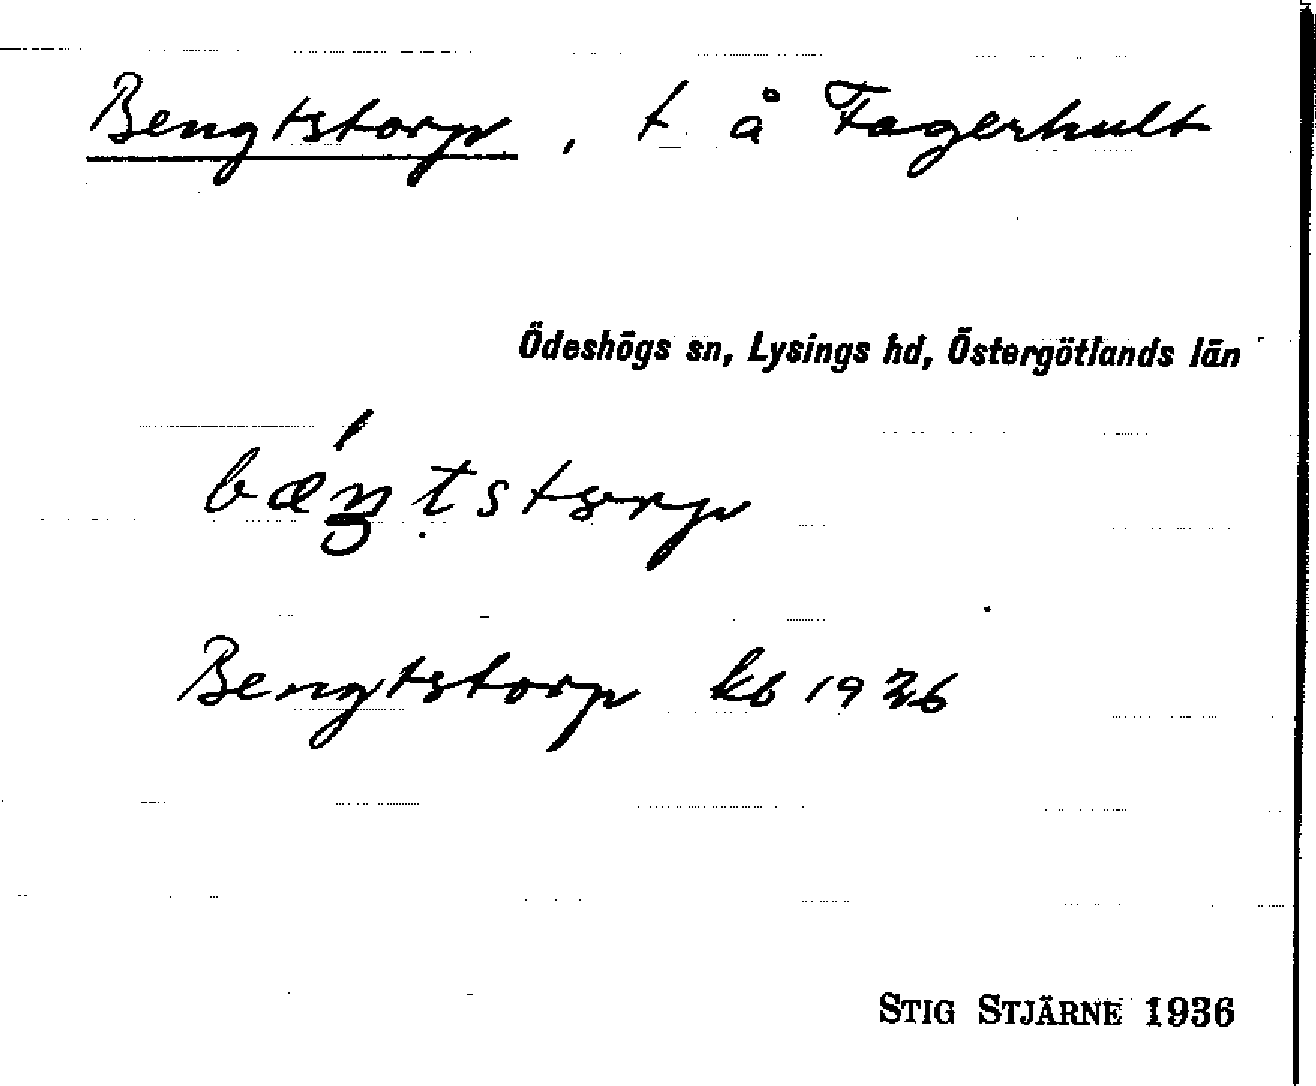 Bengtstorp, t å Fagerhult
Ödeshögs sn, Lysings hd, Östergötlands län
Bengtstorp kb 1936
STIG STJÄRNE 1936